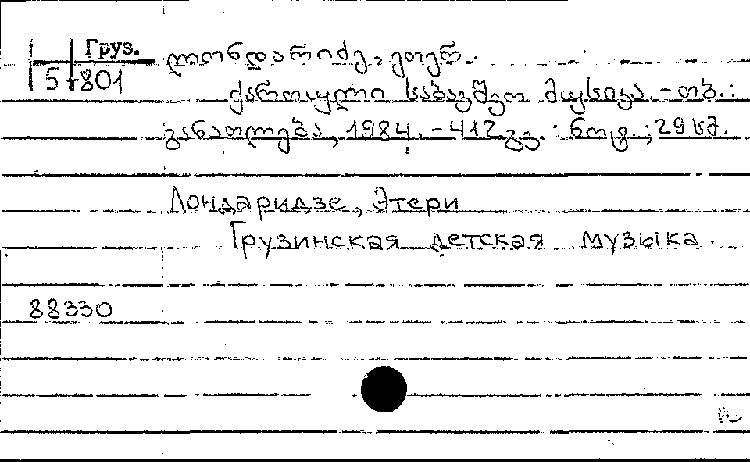 Груз.
5-801
ლონდარიძე, ეთერ.
ქართული საბავშვო მუსიკა. - თბ. :
განათლება, 1984. - 412 გვ. : ნოტ. ; 29 სმ.
Лондаридзе, Этери
Грузинская детская музыка.
88330